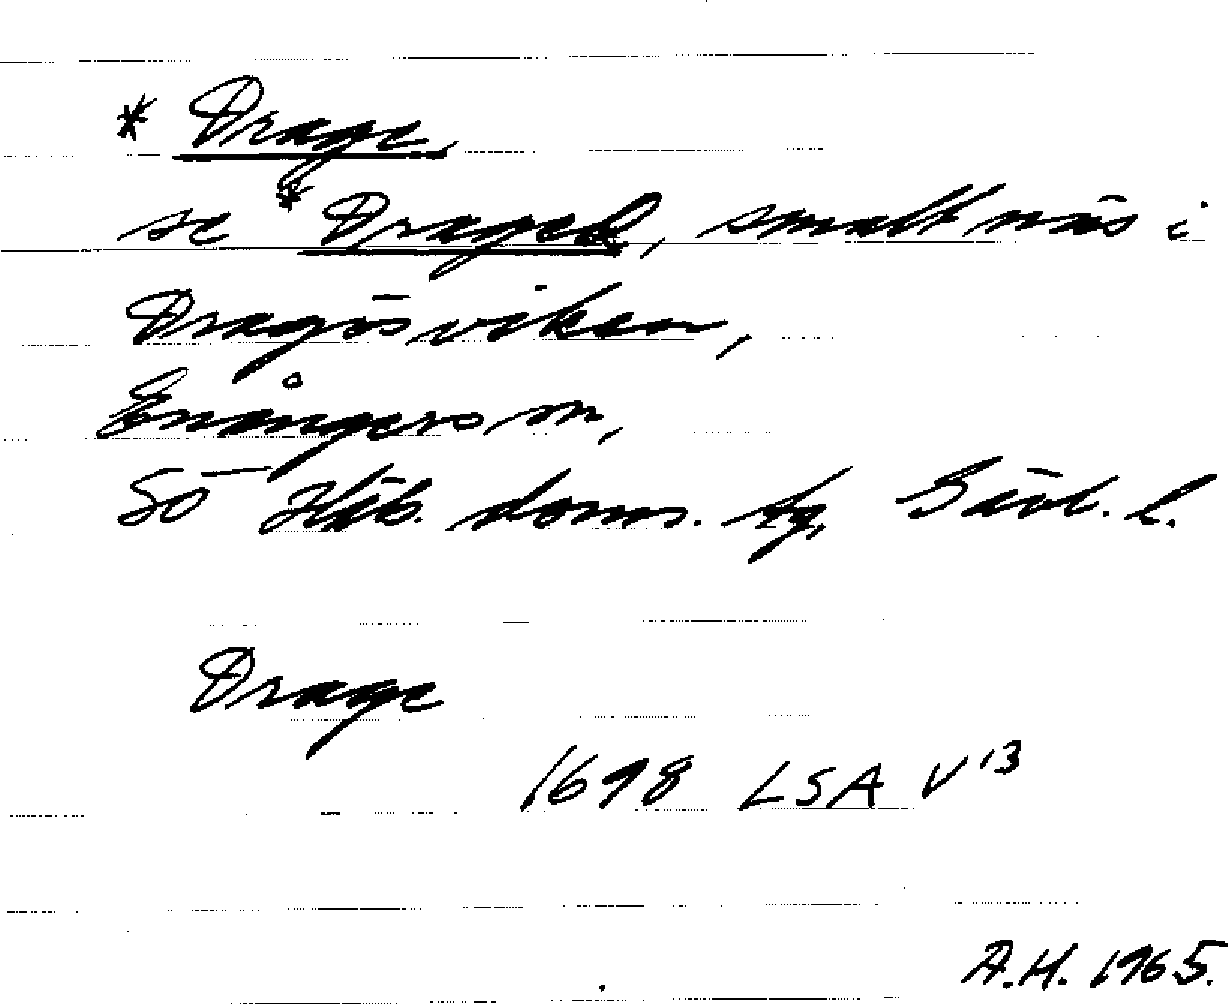 * Drage
se * Draget, smalt näs i
Dragösviken,
Enångers sn,
SÖ Häls. doms. tg, Gävl. l.
Drage
1698 LSA V 13
A.H. 1965.